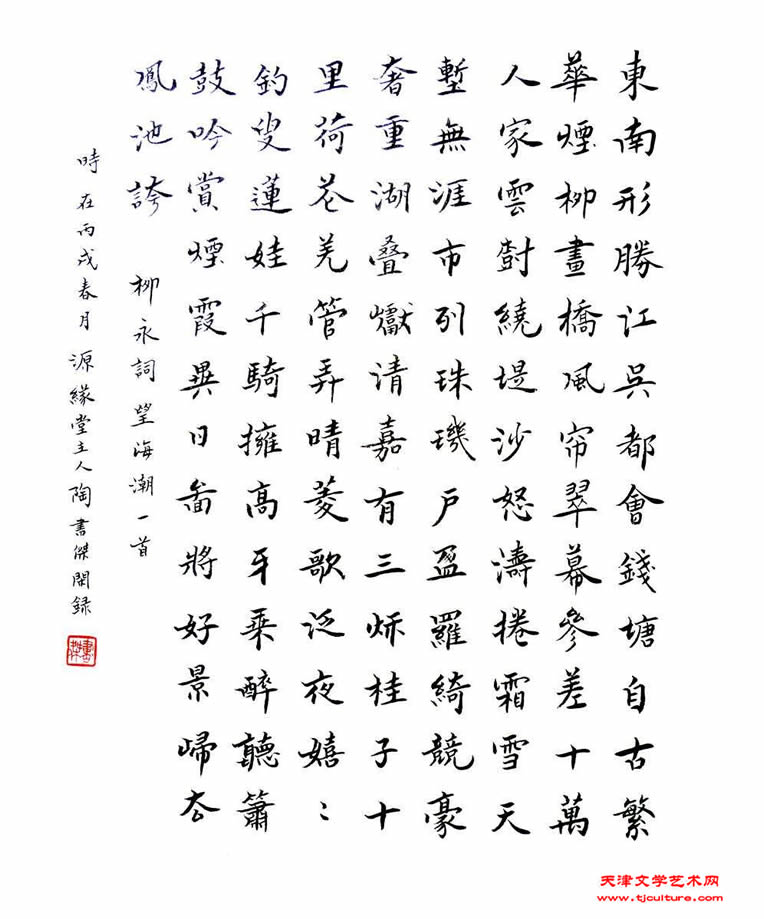 東南形勝江吳都會錢塘自古繁
華煙柳畫橋風帘翠幕參差十萬
人家雲樹繞堤沙怒濤捲霜雪天
塹無涯市列珠璣戶盈羅綺競豪
奢重湖疊巘清嘉有三秌桂子十
里荷花羌管弄晴菱歌泛夜嬉〻
釣叟蓮娃千騎擁高牙乘醉聽簫
鼓吟賞煙霞異日圖將好景歸去
鳳池誇
柳永詞望海潮一首
時在丙戌春月源緣堂主人陶書傑閑録
天津文学艺术网
www.tjculture.com